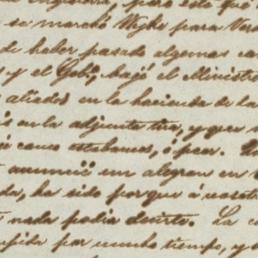 pero este fué
se marchó Wyke para Ver
de haber pasado algunas ca
y el Gobº, bajó el Ministro
aliados en la hacienda de la
en la adjunta tira, y que
como estabamos, ó peor.
anuncié un alegron en
da, ha sido porque á nosotr
nada podia decirte. La c
pida por mucho tiempo, y